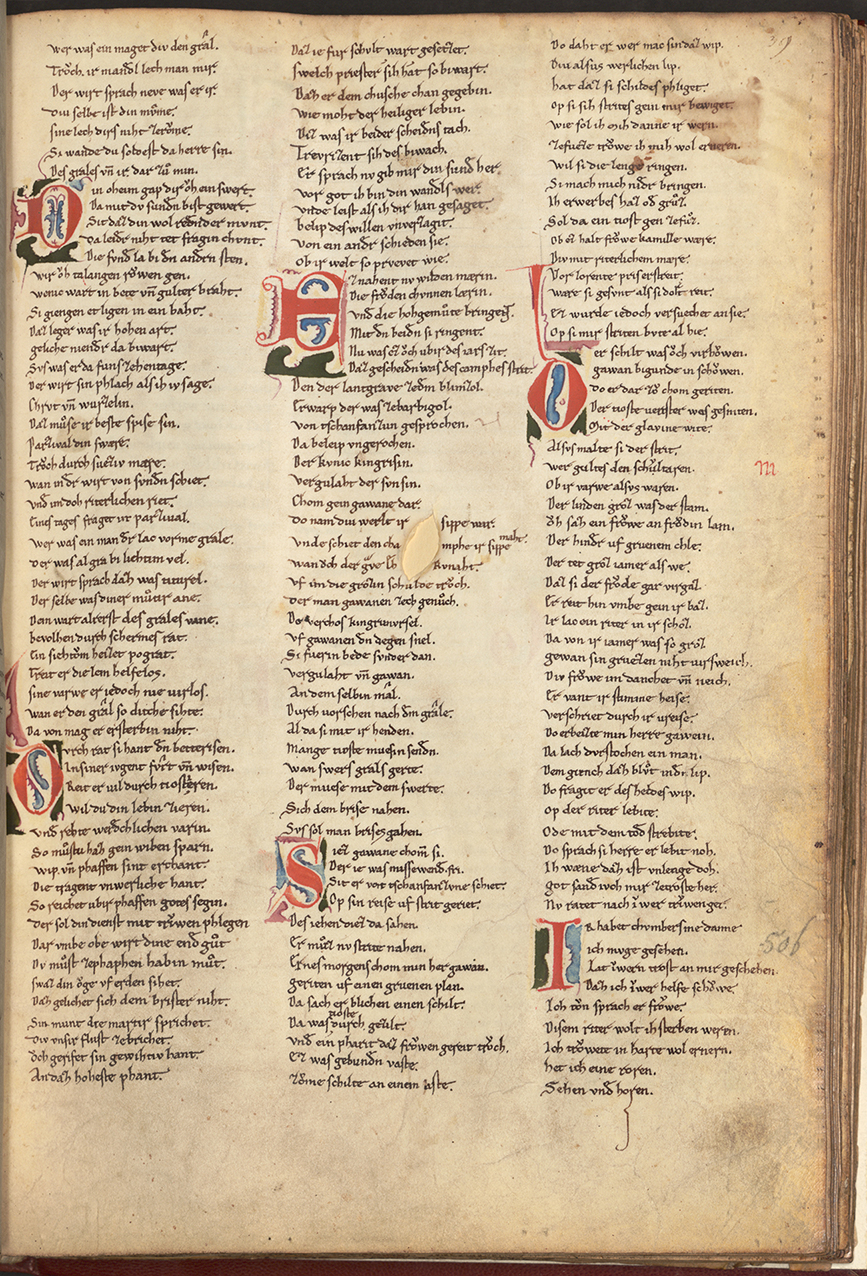 Wer was ein maget div den gral.
Trǒch. ir mandl lech man mir.
Der wirt sprach neve waſ er ir
Div ſelbe iſt din mǒme.
ſine lech dirſ niht zerǒme.
Si wande du ſoltoſt da herre ſin.
Des grales vñ ir dar zů min.
Din oheim gap dir ǒh ein ſwert.
Da mit dv ſundn biſt gewert.
Sit daz din wol redndr mvnt.
Da leidr niht tet fragin chvnt.
Die ſvnd la bi dn andrn ſten.
wir ǒh talangen rǒwen gen.
wenic wart in bete vñ gulter braht.
Si giengen et ligen in ein baht.
Daz leger waſ ir hohen art.
geliche niendr da biwart.
Svſ waſ er da funfzehentage.
Der wirt ſin phlach alſ ih iv ſage.
Chrvt vñ wurzelin.
Daz můſe ir beſte ſpiſe ſin.
Parzival din ſwære.
Trǒch durch ſuͤziv mære.
wan in dr wirt von ſvndn ſchiet.
vnd im doh riterlichen riet.
Eineſ tageſ fraget in parzival.
Wer waſ ein man dr lac vorme grale.
Der waſ al gra bi liehtem vel.
Der wirt ſprach daz waſ titurel.
Der ſelbe waſ diner mů̊tir ane.
Dem wart alrerſt deſ graleſ vane.
bevolhen durch ſchermeſ rat.
Ein ſiehtǒm heizet pograt.
Treit er die lem helfeloſ.
ſine varwe er iedoch nie virloſ.
Wan er den gral ſo dicche ſihte.
Da von mag er erſterbin niht.
Dvrch rat ſi hant dn betteriſen.
In ſiner ivgent fvrt vñ wiſen.
Reit er vil durch tioſtieren.
Wil du din lebin zieren.
vnd rehte werdchlichen varin.
So můſtu haz gein wiben ſparn.
Wip vñ phaffen ſint erchant.
Die tragent vnwerliche hant.
So reichet ubir phaffen goteſ ſegin.
Der ſol din dienſt mit trǒwen phlegen
Dar vmbe obe wirt dine end gůt
Dv můſt zephaphen habin můt.
ſwaz din ǒge vf erden ſihet.
Daz gelichet ſich dem briſter niht.
Sin munt die martir ſprichet.
Div vnſir fluſt zebrichet.
ǒch gerifet ſin gewihtiv hant.
An daz hoheſte phant.
Daz ie fur ſchult wart geſetzet.
ſwelch prieſter ſih hat ſo biwart.
Daz er dem chuſche chan gegebin.
Wie moht der heiliger lebin.
Diz waſ ir beider ſcheidnſ tach.
Trevrizent ſih deſ biwach.
Er ſprach nv gib mir din ſund her.
Vor got ih bin din wandlſ wer.
vnde leiſt alſ ih dir han geſaget.
belip deſ willen vnverzagit.
Von ein andr ſchieden ſie.
Ob ir welt ſo prvevet wie.
Ez nahent nv wilden mærin.
Die frǒden chvnnen lærin.
vnd die hohgemuͤte bringent.
Mit dn beidn ſi ringent.
Nu waſ ez ǒch ubir deſ iarſ zit.
Daz geſcheidn waſ deſ camphes ſtrit.
Den der lantgrave zedm blimzol.
Erwarp der waſ zebarbigol.
von tſchanfanzun geſprochen.
Da beleip vngerochen.
Der kvnic kingriſin.
Vergulaht der ſvn ſin.
Chom gein gawane dar.
Do nam div werlt ir ſippe war.
Vnde ſchiet den champhe ir ſippe maht.
wan doch der kvnaht.
vf im die grozin ſchulde trǒch.
Der man gawanen zech genůch.
Des verchoſ kingrimurſel.
Vf gawanen dn degen ſnel.
Si fuͤrin bede ſvnder dan.
Vergulaht vñ gawan.
An dem ſelbin mal.
Durch vorſchen nach dm grale.
Al da ſi mit ir henden.
Mange tioſte mueſin ſendn.
wan ſwerſ gralſ gerte.
Der mueſe mit dem ſwerte.
Sich dem briſe nahen.
Svſ ſol man briſeſ gahen.
Wiez gawane chom̄ ſi.
Der ie waſ miſſewend fri.
Sit er von tſchanfanzvne ſchiet.
Op ſin reiſe vf ſtrit geriet.
Deſ iehen diez da ſahen.
Er můz nv ſtrite nahen.
Eineſ morgenſ chom min her gawan.
geriten vf einen gruenen plan.
Da ſach er blichen einen ſchilt.
Da waſ tioſte durch gezilt.
Vnd ein pharit daz frǒwen gereit trǒch.
Ez waſ gebundn vaſte.
zǒme ſchilte an einem aſte.
Do daht er wer mac ſin daz wip.
Div alſuſ werlichen lip.
hat daz ſi ſchildeſ phliget.
Op ſi ſih ſtriteſ gein mir bewiget.
Wie ſol ih mih danne ir wern.
zefuͤze trǒwe ih mih wol erneren.
Wil ſi die lenge ringen.
Si mach mich nidr bringen.
Ih erwerbeſ haz od grůz.
Sol da ein tioſt gen zefůz.
Ob ez halt frǒwe kamille wære.
Div mit riterlichem mære.
Vor lorente priſ erſtreit.
Wære ſi geſvnt alſ ſi dort reit.
Ez wurde iedoch verſuechet an ſie.
Op ſi mir ſtriten byte al hie.
Der ſchilt waſ ǒch virhǒwen.
gawan bigunde in ſchǒwen.
do er dar zǒ chom geriten.
Der tioſte venſter waſ geſniten.
Mit der glavine wite.
Alſvſ malte ſi der ſtrit.
wer gulteſ den ſchiltaren.
Ob ir varwe alſuſ waren.
Der linden groz waſ der ſtam.
Oh ſaz ein frǒwe an frǒdin lam.
Der hindr vf gruenem chle.
Der tet groz iamer alſ we.
Daz ſi der frǒde gar virgaz.
Er reit hin vmbe gein ir baz.
Ir lac ein riter in ir ſchoz.
Da von ir iamer waſ ſo groz.
gewan ſin gruezen niht virſweich.
Div frǒwe im danchet vñ neich.
Er vant ir ſtimme heiſe.
verſchriet durch ir vreiſe.
Do erbeizte min herre gawein.
Da lach dvrſtochen ein man.
Dem giench daz blůt indn lip.
Do fragt er deſ heldeſ wip.
Op der riter lebite.
Ode mit dem tod ſtrebite.
Do ſprach ſi herre er lebit noh.
Ih wæne daz iſt vnlenge doh.
got ſand ivch mir zetroſte her.
Nv ratet nach iwer triwen ger.
Ir habet chvmberſ me danne
ich mvge geſehen.
Lat iwern troſt an mir geſchehen.
Daz ich iwer helfe ſchǒwe.
Ich tǒn ſprach er frǒwe.
Diſem riter wolt ih ſterben weren.
Ich trǒwete in harte wol ernern.
het ich eine roren.
Sehen vnd horen.
506